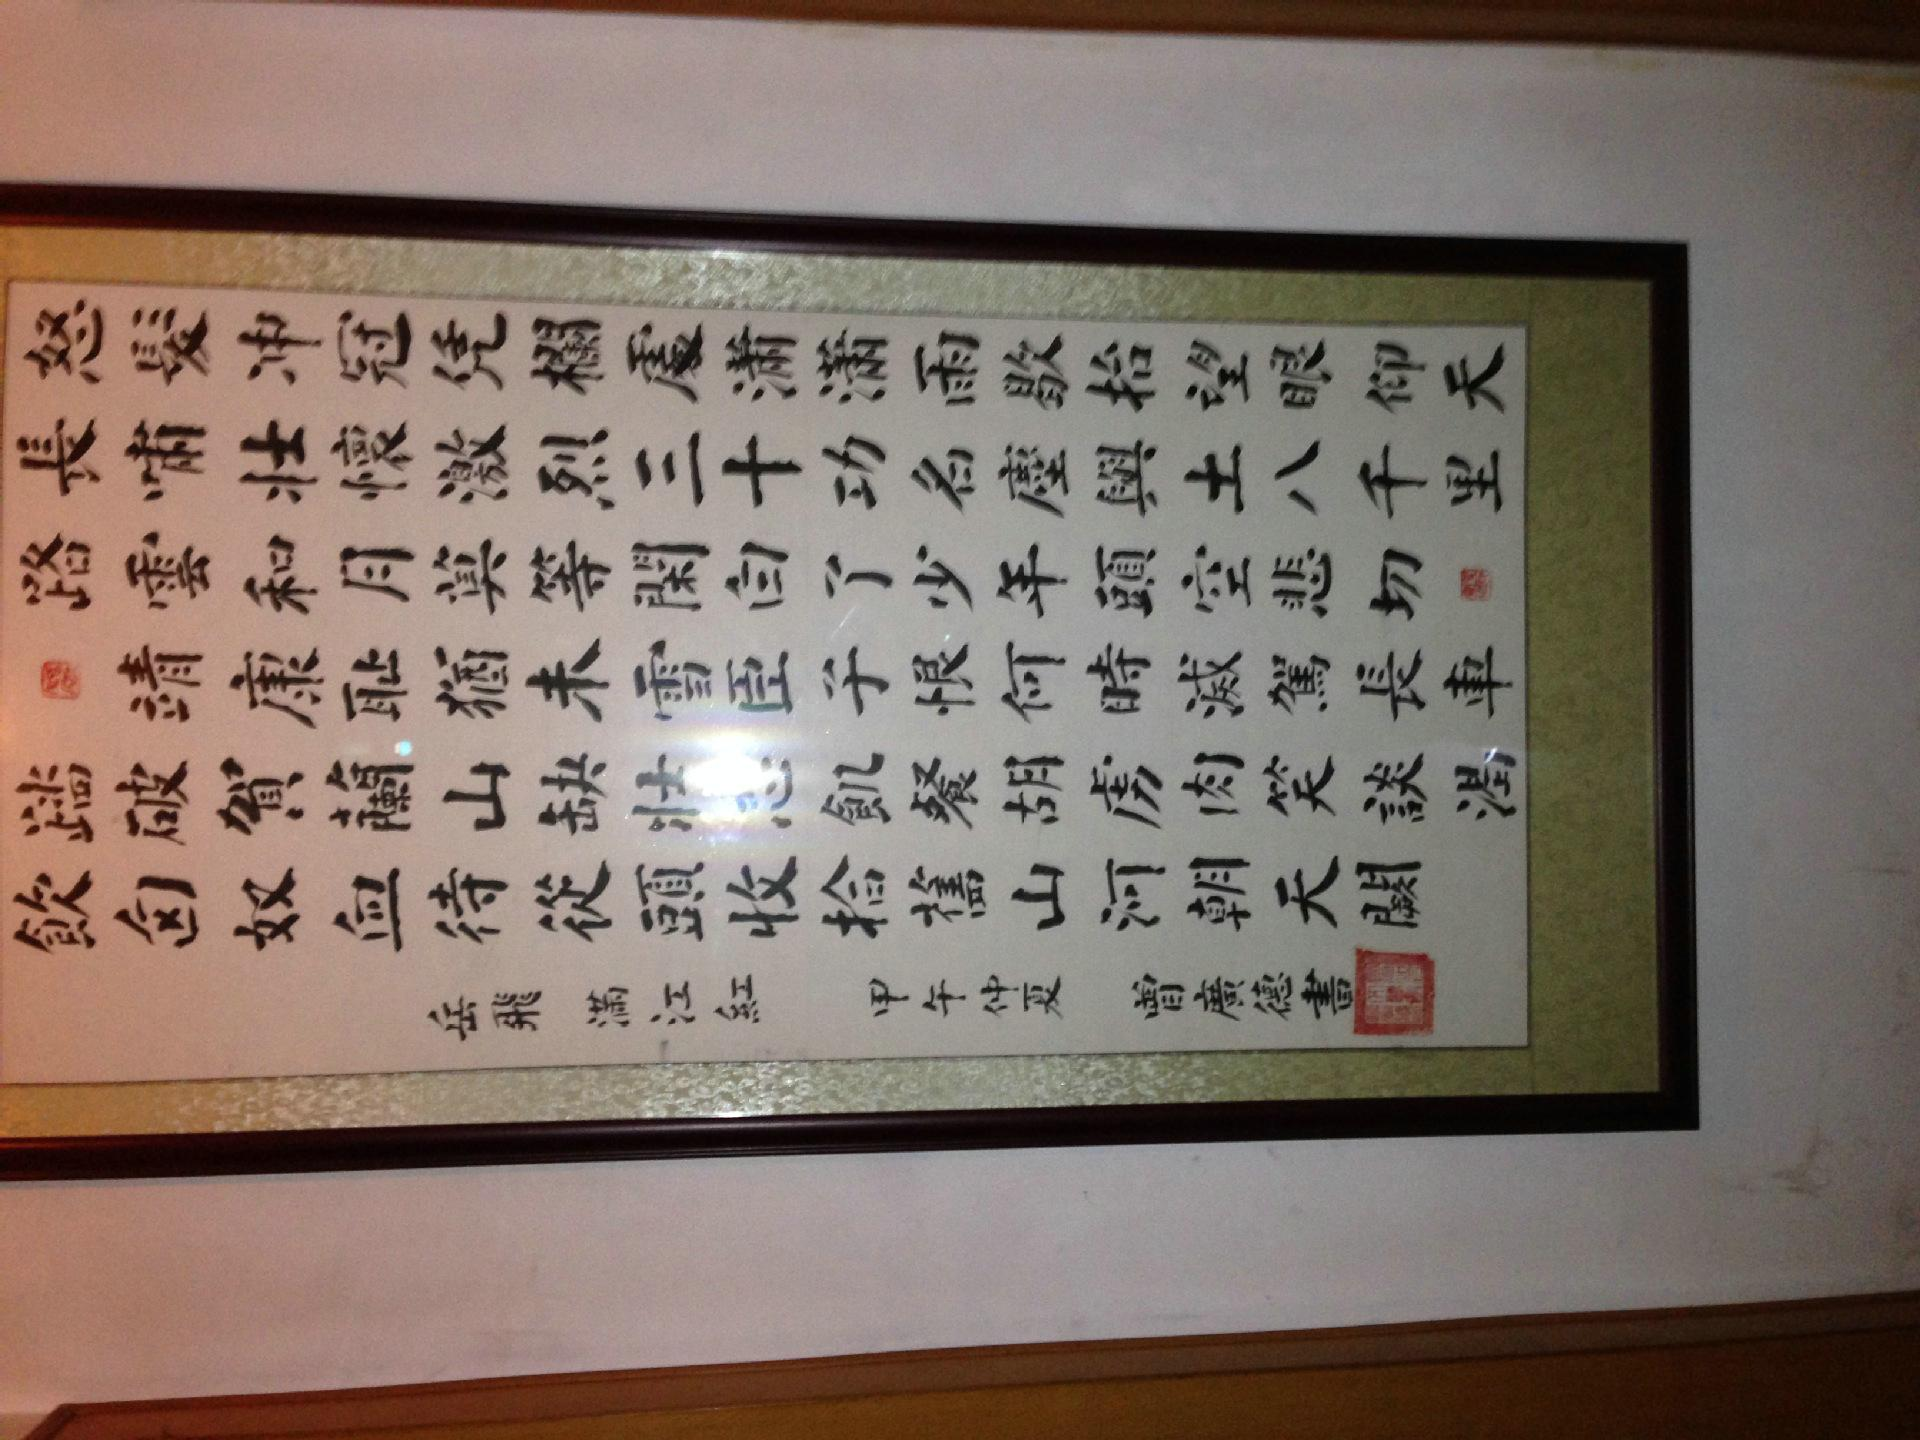 怒髮冲冠凭欄處瀟瀟雨歇抬望眼仰天
長嘯壯懷激烈三十功名塵與土八千里
路雲和月莫等閑白了少年頭空悲切
靖康恥猶未雪臣子恨何時滅駕長車
踏破賀蘭山缺壯志飢餐胡虜肉笑談渴
飲匈奴血待從頭收拾舊山河朝天闕
岳飛 滿江紅 甲午仲夏 曾廣德書